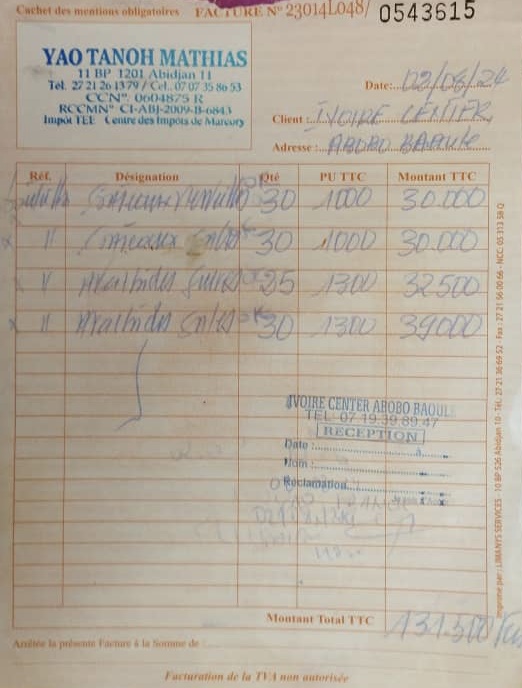 Cachet des mentions obligatoires FACTURE N° 23014L048/ 0543615
YAO TANOH MATHIAS
11 BP 1201 Abidjan 11
Tél. 27 21 26 13 79 / Cel. 07 07 35 86 53
CCN°. 0604875 R
RCCMN° CI-ABJ-2009-B-6843
Impôt TEE Centre des Impôts de Marcory
Date: 03/08/24
Client : IVOIRE CENTER
Adresse : ABOBO BAOULE
Réf. Désignation Qté PU TTC Montant TTC
30 1000 30.000
" 30 1000 30.000
" 25 1300 32500
" 30 1300 39000
IVOIRE CENTER ABOBO BAOULE
TEL: 07 19 39 89 47
RECEPTION
Date :
Nom :
Réclamation
Montant Total TTC 131.500
Arrêtée la présente Facture à la Somme de :
Facturation de la TVA non autorisée
Imprimé par : LIMANYS SERVICES - 10 BP 526 Abidjan 10 - Tél.: 27 21 36 69 52 - Fax : 27 21 56 00 66 - NCC: 05 313 59 Q